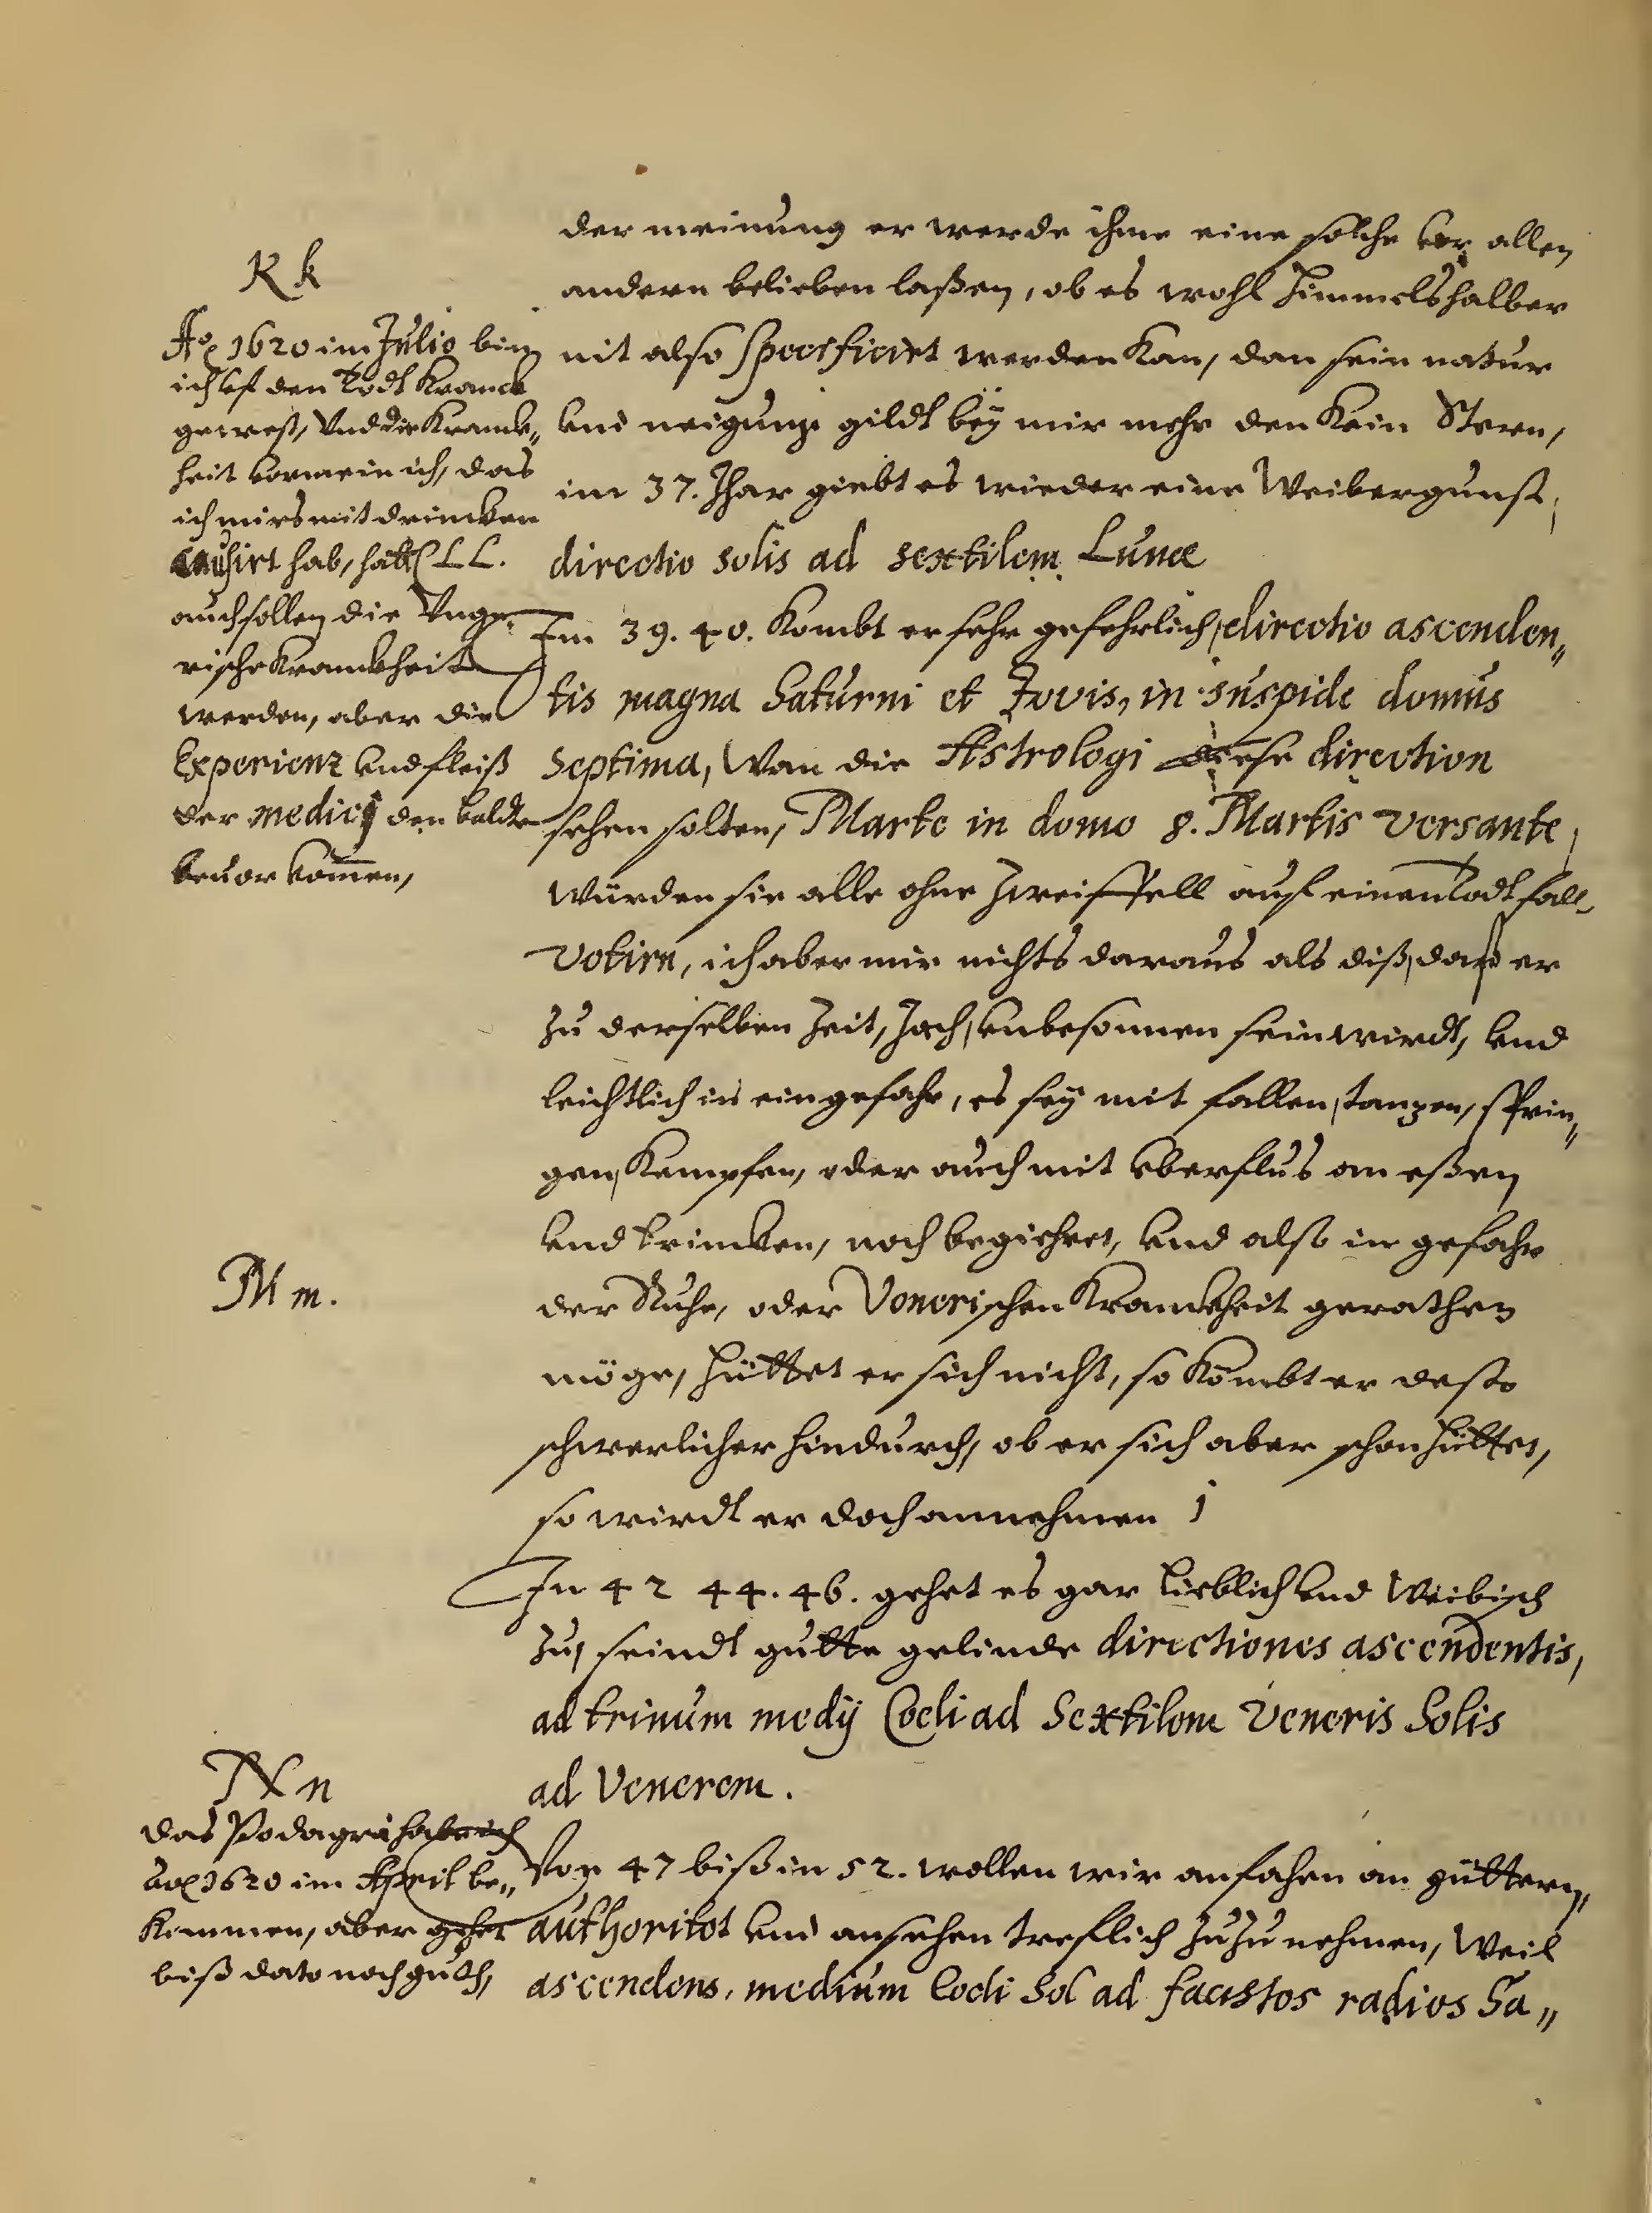 K k
Aō 1620 im Julio bin
ich vf den Todt Kranck
gewest, Vnd die Kranck„
heit vormein ich, das
ich mirs mit drincken
causirt hab, hatt LL.
auch sollen die Vnge„
rische Kranckheit
werden, aber die
Experienz vnd fleiß
der medicj den baldt
beuor komen,
der meinung er werde ihme eine solche vor allen
andern belieben laßen, ob es wohl Himmelshalber
nit also specificirt werden Kan, dan sein natur
vnd neigung gildt beÿ mir mehr den Kein Stern,
im 37. Jhar giebt es wieder eine Weibergunst,
directio solis ad sextilem Lunæ
Im 39. 40. Kombt er sehr gefehrlich, directio ascenden„
tis magna Saturni et Jovis, in suspide domus
Septima, Wan die Astrologi diese direction
sehen solten, Marte in domo 8. Martis versante,
würden sie alle ohne Zweiffell auf einen Todtfall
votirn, ich aber mir nichts daraus als diß, daß er
zu derselben Zeit, Jach, vnbesonnen sein wirdt, vnd
leichtlich in ein gefahr, es seÿ mit fallen, tanzen, sprin„
gen, Kempfen, oder auch mit vberflus an eßen
vnd trincken, noch begiehret, vnd also in gefahr
der Ruhr, oder Venerischen Kranckheit gerathen
möge, hüttet er sich nicht, so Kombt er desto
schwerlicher hindurch, ob er sich aber schon hüttet,
so wirdt er doch annehmen
M m.
In 42 44. 46. gehet es gar lieblich vnd Weibisch
zu, seindt gutte gelinde directiones ascendentis,
ad trinum medÿ Coeli ad Sextilem Veneris Solis
ad Venerem.
N n
das Podagra habe ich
Aō 1620 im April be„
Kommen, aber gehet
biß dato noch guth,
Von 47 biß in 52. wollen wir anfahen an güttern,
authoritet vnd ansehen treflich zuzunehmen, Weil
ascendens, medium Coeli Sol ad faustos radios Sa„